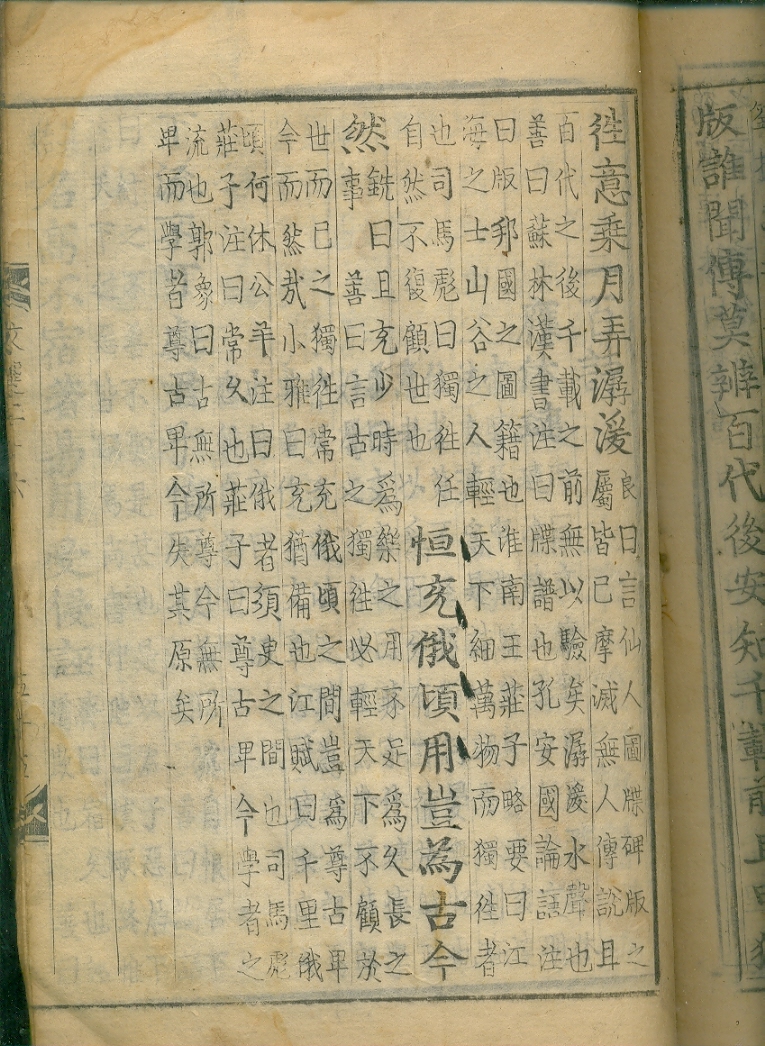 版誰聞傳莫辨百代後安知千載前且申獨
徃意乘月弄潺湲
良曰言仙人圖牒碑版之
屬皆已摩滅無人傳說且
百代之後千載之前無以驗矣潺湲水聲也
善曰蘇林漢書注曰牒譜也孔安國論語注
曰版邦國之圖籍也淮南王莊子略要曰江
海之士山谷之人輕天下細萬物而獨徃者
也司馬彪曰獨徃任
自然不復顧世也
恒充俄頃用豈為古今
然
銑曰且充少時為樂之用不足為久長之
事 善曰言古之獨徃必輕天下不顧於
世而已之獨徃常充俄頃之間豈為尊古卑
今而然哉小雅曰充猶備也江賦曰千里俄
頃何休公羊注曰俄者須臾之間也司馬彪
莊子注曰常久也莊子曰尊古卑今學者之
流也郭象曰古無所尊今無所
卑而學者尊古卑今失其原矣
文選二十六